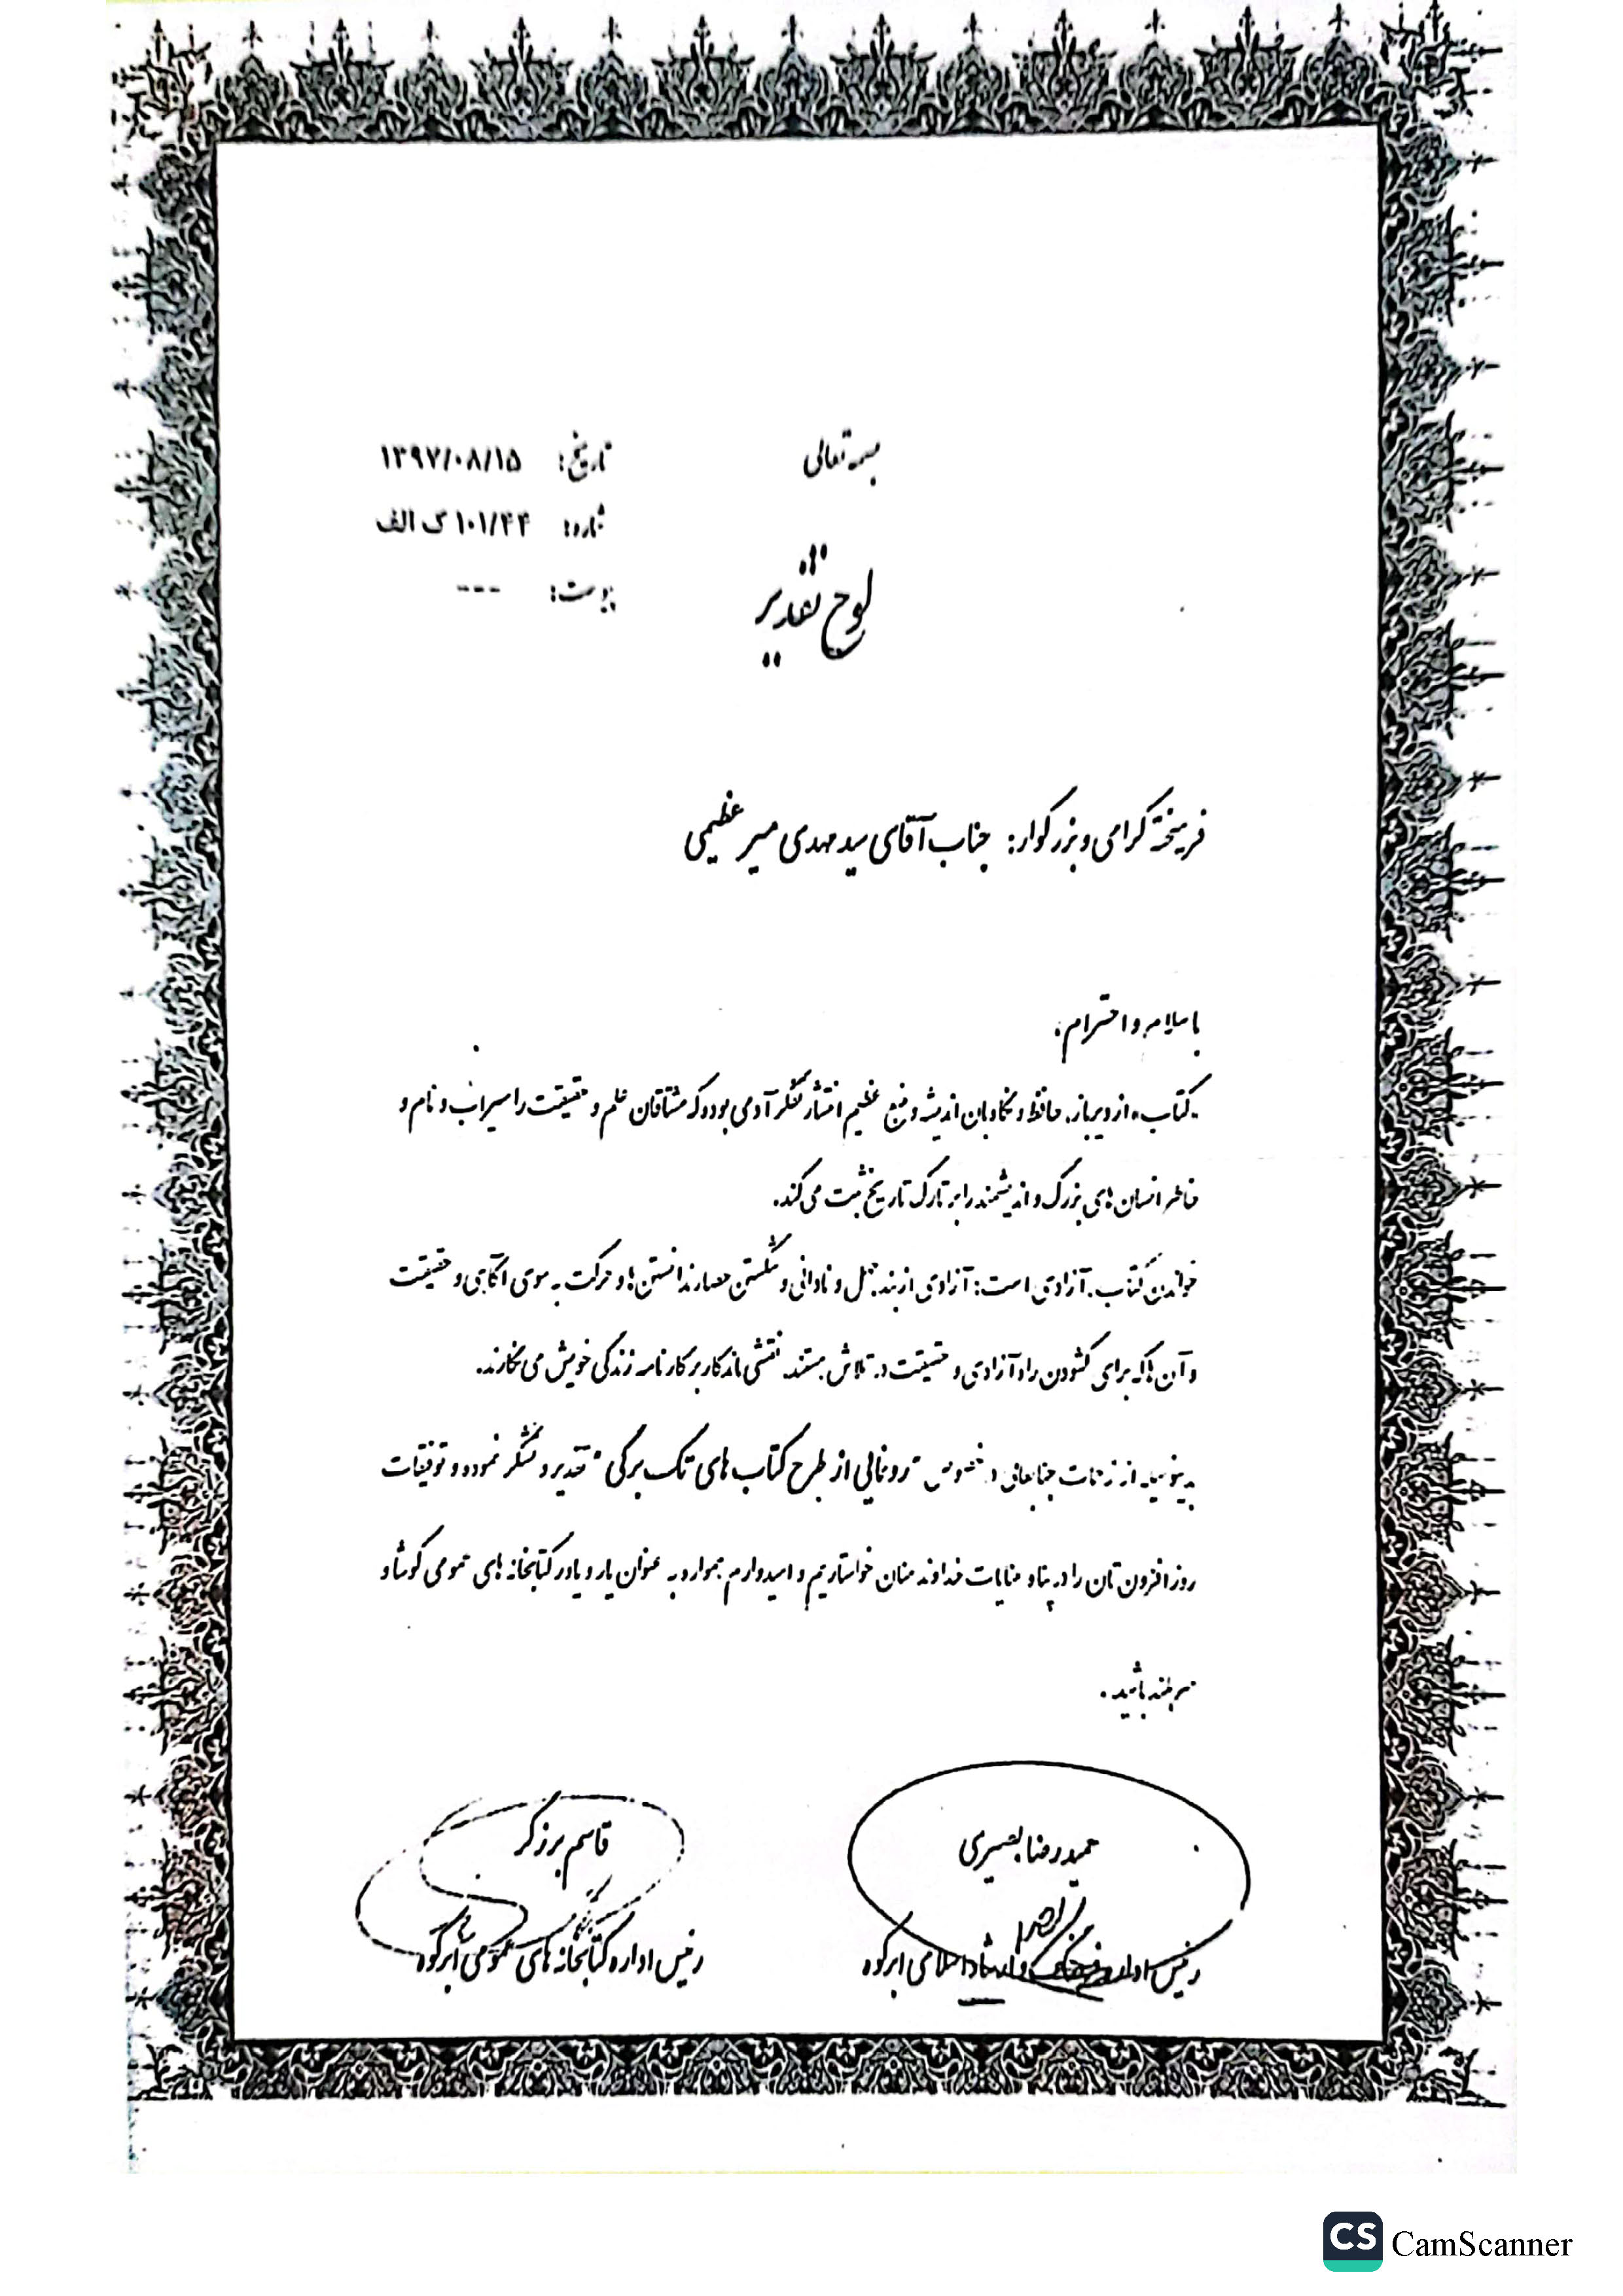 بسمه تعالی
تاریخ: ۱۳۹۷/۰۸/۱۵
شماره: ۱۰۱/۴۴ ک الف
پیوست: ---
لوح تقدیر
فریخته گرامی و بزرگوار: جناب آقای سید مهدی میرعظیمی
با سلام و احترام،
«کتاب» از دیرباز، حافظ و نگاهبان اندیشه و منبع عظیم انتشار تفکر آدمی بوده که مشتاقان علم و حقیقت را سیراب و نام و
خاطر انسان های بزرگ و اندیشمند را بر تارک تاریخ ثبت می کند.
خواندن کتاب، آزادی است: آزادی از بند جهل و نادانی و شکستن حصار ندانستن ها و حرکت به سوی آگاهی و حقیقت
و آن ها که برای گشودن راه آزادی و حقیقت در تلاش هستند، نقشی ماندگار بر کارنامه زندگی خویش می نگارند.
بدینوسیله از زحمات جنابعالی در خصوص "رونمایی از طرح کتاب های تک برگی" تقدیر و تشکر نموده و توفیقات
روز افزون تان را در پناه عنایات خداوند منان خواستاریم و امیدوارم همواره به عنوان یار و یاور کتابخانه های عمومی کوشا و
سربلند باشید.
حمیدرضا بصیری
قاسم برزگر
رئیس اداره فرهنگ و ارشاد اسلامی ابرکوه
رئیس اداره کتابخانه های عمومی ابرکوه
CS CamScanner